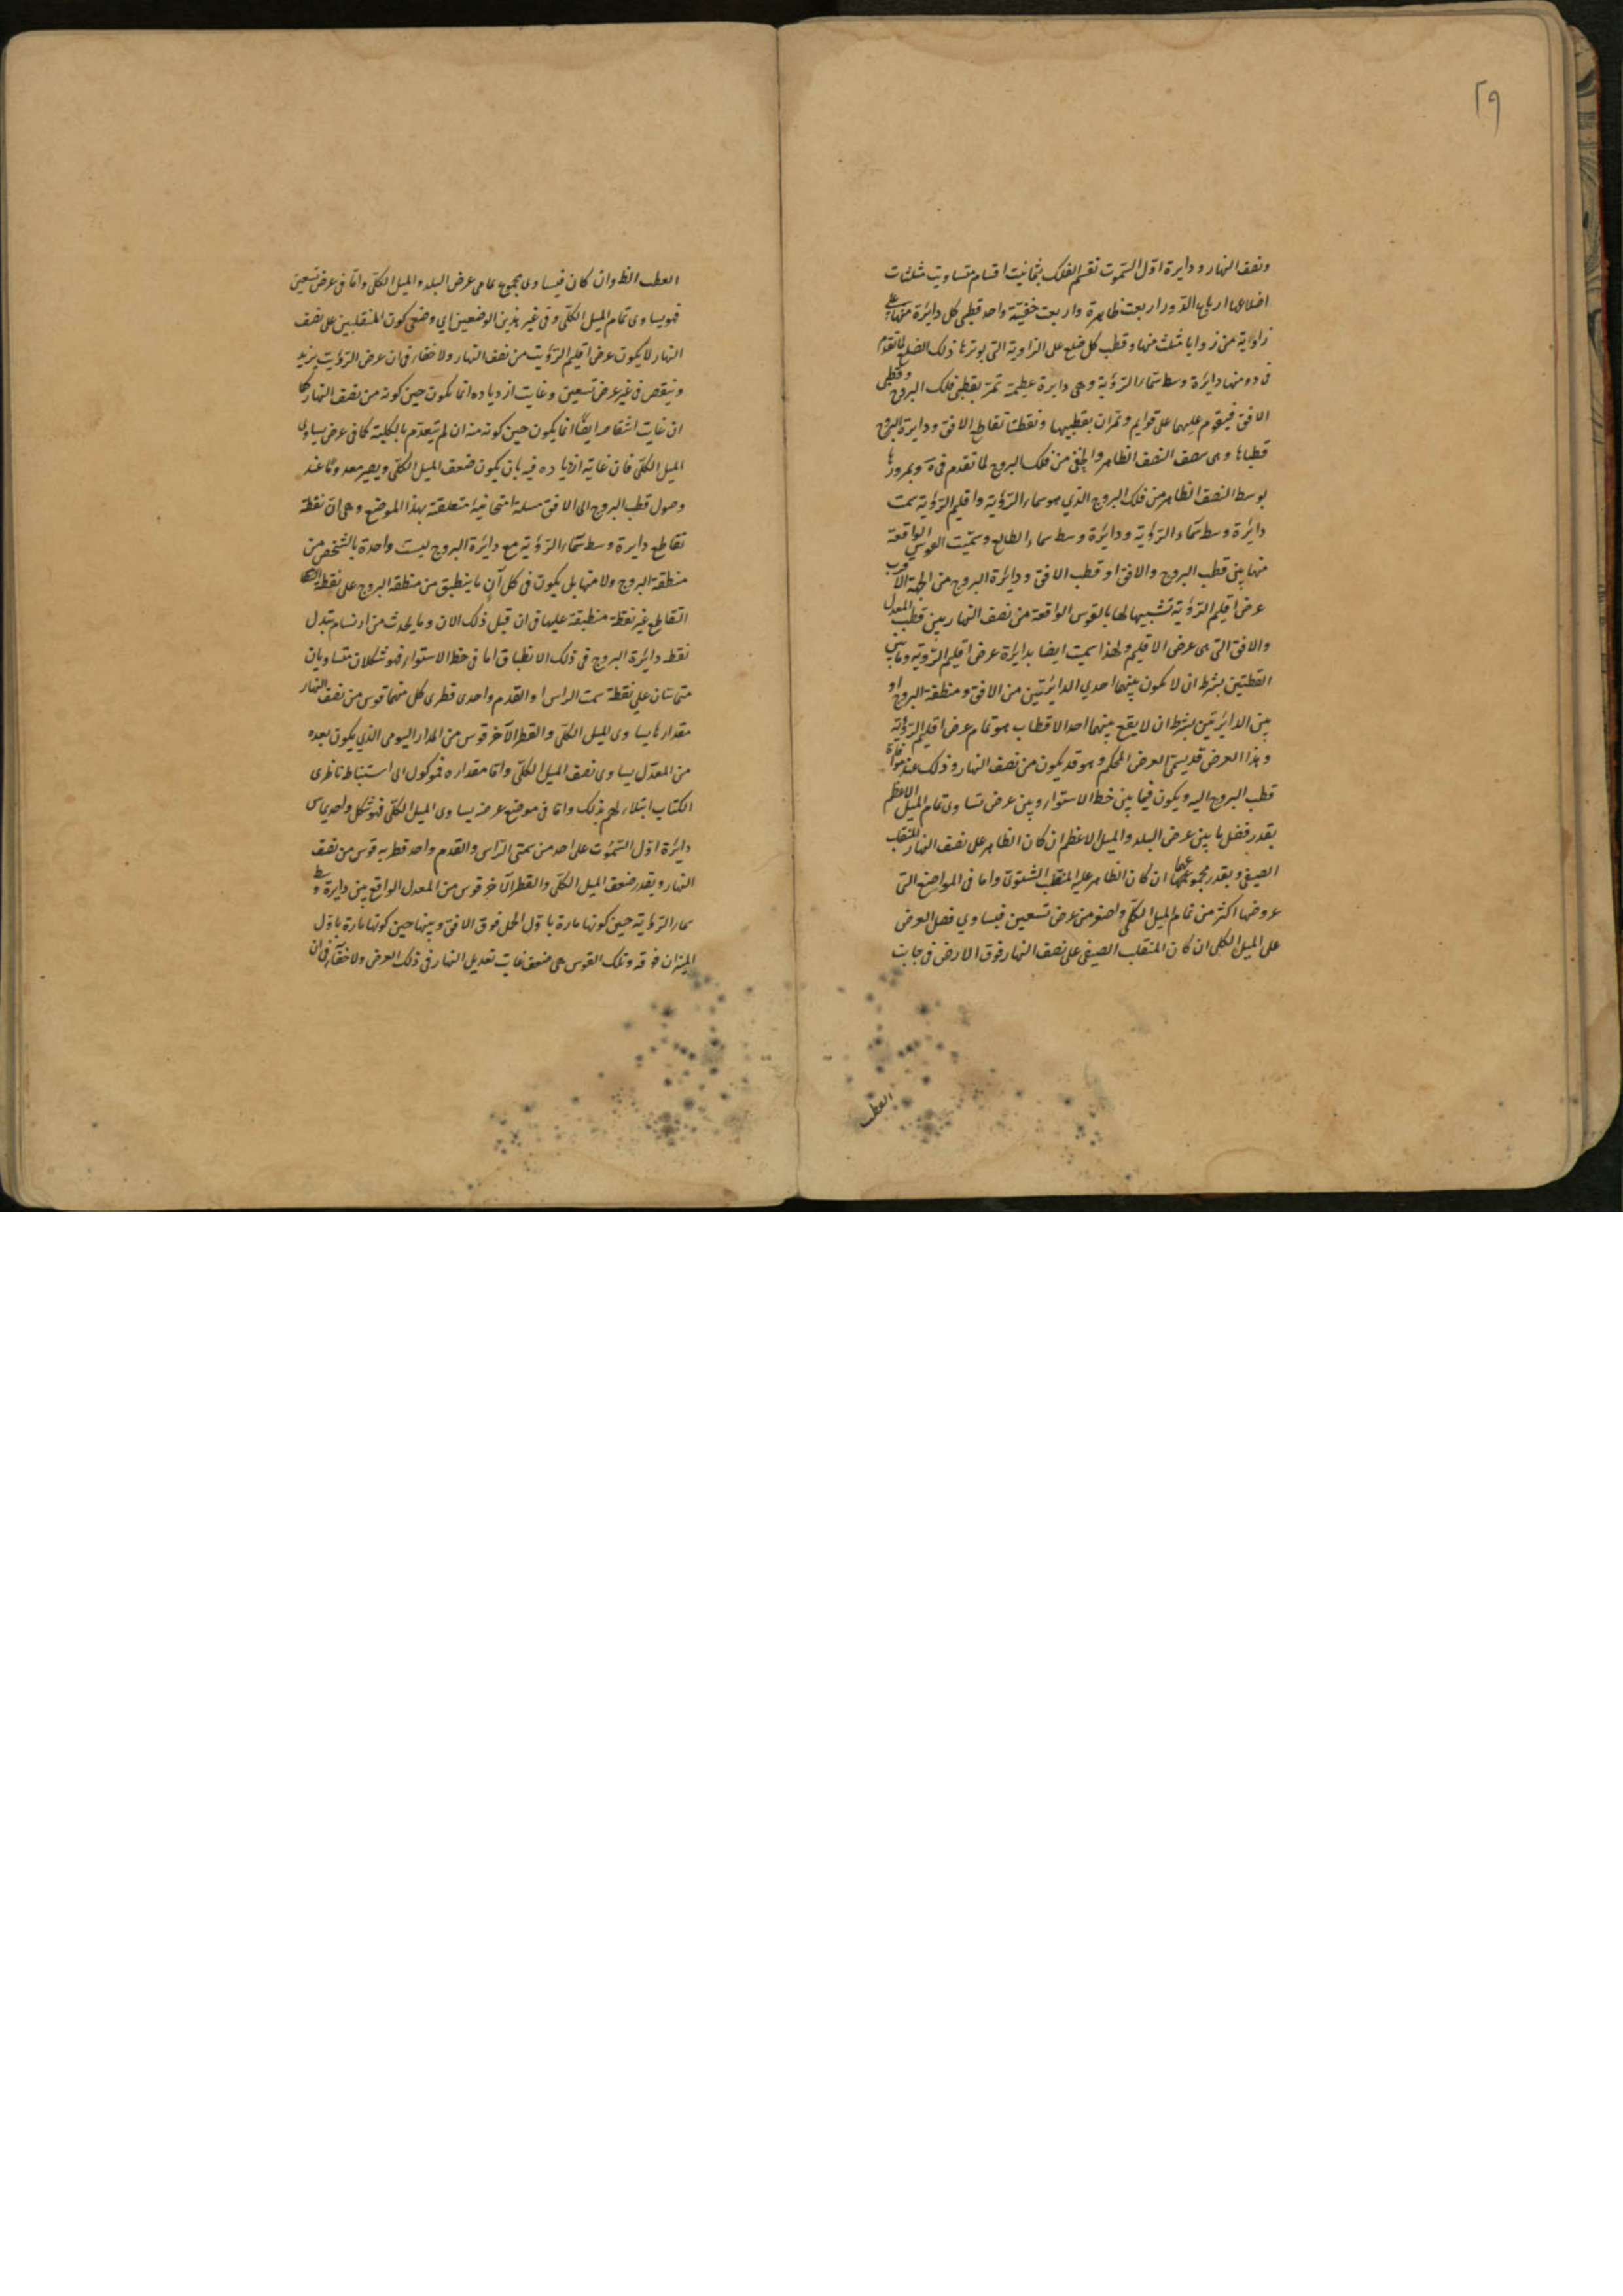 ٢٩
ونصف النهار ودايرة اول السموت تقسم الفلك بثمانيت اقسام متساويت مثلثات
اضلاعها ارباع الدور اربعت ظاهرة واربعت خفيّة واحد قطبى كل دائرة منها على
زاوية من زوايا مثلث منها وقطب كل ضلع على الزاوية التى يوترها ذلك الضلع لما تقدم
فى ده ومنها دايرة وسط سماء الرؤية وهى دايرة عظيمة تمر بقطبى فلك البروج وقطبى
الافق فيقوم عليهما على قوايم وتمران بقطبيها ونقطتا تقاطع الافق ودايرة البروج
قطباها وهى تنصف النصف الظاهر والخفى من فلك البروج لما تقدم فى وبمرورها
بوسط النصف الظاهر من فلك البروج الذي هو سماء الرؤية واقليم الرؤية سمت
دائرة وسط سماء الرؤية ودائرة وسط سماء الطالع وسمّيت القوس الواقعة
منها بين قطب البروج والافق او قطب الافق ودائرة البروج من الجهة الاقرب
عرض اقليم الرؤية تشبيها لها بالقوس الواقعة من نصف النهار بين قطب المعدل
والافق التى هى عرض الاقليم ولهذا سميت ايضا بدايرة عرض اقليم الرؤية وما بين
القطبين بشرط ان لا يكون بينهما احدي الدائرتين من الافق ومنطقة البروج او
بين الدائرتين بشرط ان لا يقع بينهما احد الاقطاب هو تمام عرض اقليم الرؤية
وهذا العرض قد يسمّى العرض المحكم وهو قد يكون من نصف النهار وذلك عند موافاة
قطب البروج اليه ويكون فيما بين خط الاستوار وبين عرض تساوى تمام الميل الاعظم
بقدر فضل ما بين عرض البلد والميل الاعظم ان كان الظاهر على نصف النهار المنقلب
الصيفى وبقدر مجموعهما ان كان الظاهر عليه المنقلب الشتوىّ واما فى المواضع التى
عروضها اكثر من تمام الميل الكلّى واصغر من عرض تسعين فيساوي فضل العرض
على الميل الكلى ان كان المنقلب الصيفى على نصف النهار فوق الارض فى جانب
القطب
القطب الظ وان كان فيساوى مجموع تمامى عرض البلد والميل الكلّى وامّا فى عرض تسعين
فهو يساوى تمام الميل الكلّى وفى غير هذين الوضعين اي وضعى كون المنقلبين على نصف
النهار لا يكون عرض اقليم الرؤيت من نصف النهار ولا خفاء فى ان عرض الرؤيت يزيد
وينقص فى غير عرض تسعين وغايت ازدياده انما يكون حين كونه من نصف النهار كما
ان غايت انتقاصه ايضًا انما يكون حين كونه منه ان لم ينعدم بالكلية كما فى عرض يساوى
الميل الكلّى فان غاية ازدياده فيه بان يكون ضعف الميل الكلّى ويصير معدومًا عند
وصول قطب البروج الى الافق مسلة امتحانية متعلقة بهذا الموضع وهى انّ نقطة
تقاطع دايرة وسط سماء الرؤية مع دائرة البروج ليست واحدة بالشخص من
منطقة البروج ولا منها بل يكون فى كل آن ما ينطبق من منطقة البروج على نقطة
التقاطع غير نقطة منطبقة عليها فى ان قبل ذلك الان وما يحدث من ارتسام تبدل
نقط دايرة البروج فى ذلك الانطباق اما فى خط الاستوار فهو شكلان متساويان
متماسّان على نقطة سمت الراس او القدم واحدى قطرى كل منهما قوس من نصف النهار
مقدارها يساوى الميل الكلّى والقطر الآخر قوس من المدار اليومى الذي يكون بعده
من المعدّل يساوى نصف الميل الكلّى وامّا مقداره فموكول الى استنباط ناظرى
الكتاب ابتلاء لهم بذلك وامّا فى موضع عرضه يساوى الميل الكلّى فهو شكل واحد يماس
دايرة اوّل السّموت على احد من سمتى الرّاس والقدم واحد قطريه قوس من نصف
النهار وبقدر ضعف الميل الكلّى والقطر الآخر قوس من المعدل الواقع بين دايرة وسط
سماء الرؤية حين كونها مارة باوّل الحمل فوق الافق وبينها حين كونها مارة باوّل
الميزان فوقه وتلك القوس هى ضعف غايت تعديل النهار فى ذلك العرض ولا خفآء فى ان